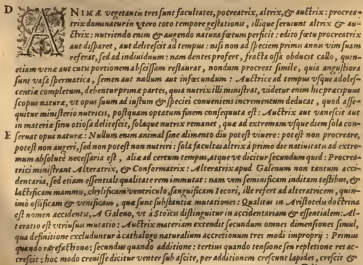 D
ANIMÆ vegetantis tres sunt facultates, procreatrix, altrix, & auctrix: procrea-
trix dominatur in utero toto tempore gestationis, illique serviunt altrix & au-
ctrix: nutriendo enim & augendo natura fœtum perficit: edito fœtu procreatrix
aut disparet, aut delitescit ad tempus: nisi non ad speciem primis annis vim suam
referat, sed ad individuum: nam dentes profert, fracta ossa obducto callo, quin-
etiam vene aut cutis portionem abscissam restaurat, nondum procreat simile, quia angustiora
sunt vasa spermatica, semen aut nullum aut infœcundum: Auctrice ad tempus usque adoles-
centiæ completum, debentur primæ partes, quia nutrix illi ministrat, videtur enim hic præcipuus
scopus naturæ, ut opus suum ad iustum & speciei conveniens incrementum deducat, quod asse-
quitur ministerio nutricis, postquam optatum finem consequuta est: Auctrix aut vanescit aut
in materia sinu otiosa delitescit, solaque nutrix remanet, quæ ad extremum usque diem sola con-
E servat opus naturæ: Nullum enim animal sine alimento diu potest vivere: potest non procreare,
potest non augeri, sed non potest non nutriri: sola facultas altrix à primo die nativitatis ad extre-
mum absolute necessaria est, aliæ ad certum tempus, atque ut dicitur secundum quid: Procrea-
trici ministrant Alteratrix, & Conformatrix: Alteratrix apud Galenum non tantum acci-
dentaria, sed etiam essentiali qualitate rem immutat: nam vim seminificam inditam testibus, &
lactificam mammis, chylificam ventriculo, sanguificam Iecori, ille refert ad alteratricem, quin-
imo ossificam & venificam, quæ sunt substantiæ mutationes: Qualitas in Aristotelis doctrina
est nomen accidentis, A Galeno, ut à Stoicis distinguitur in accidentariam & essentialem: Al-
teratio est utriusque mutatio: Auctrix materiam extendit secundum omnes dimensiones simul,
qua definitione excluduntur à cathalogo naturalium accretionum tres modi improprij: Primus
quando rarefactione: secundus quando additione: tertius quando tensione seu repletione res ac-
crescit: hoc modo crevisse dicitur venter sub ascite, per additionem crescunt lapides, crescit &